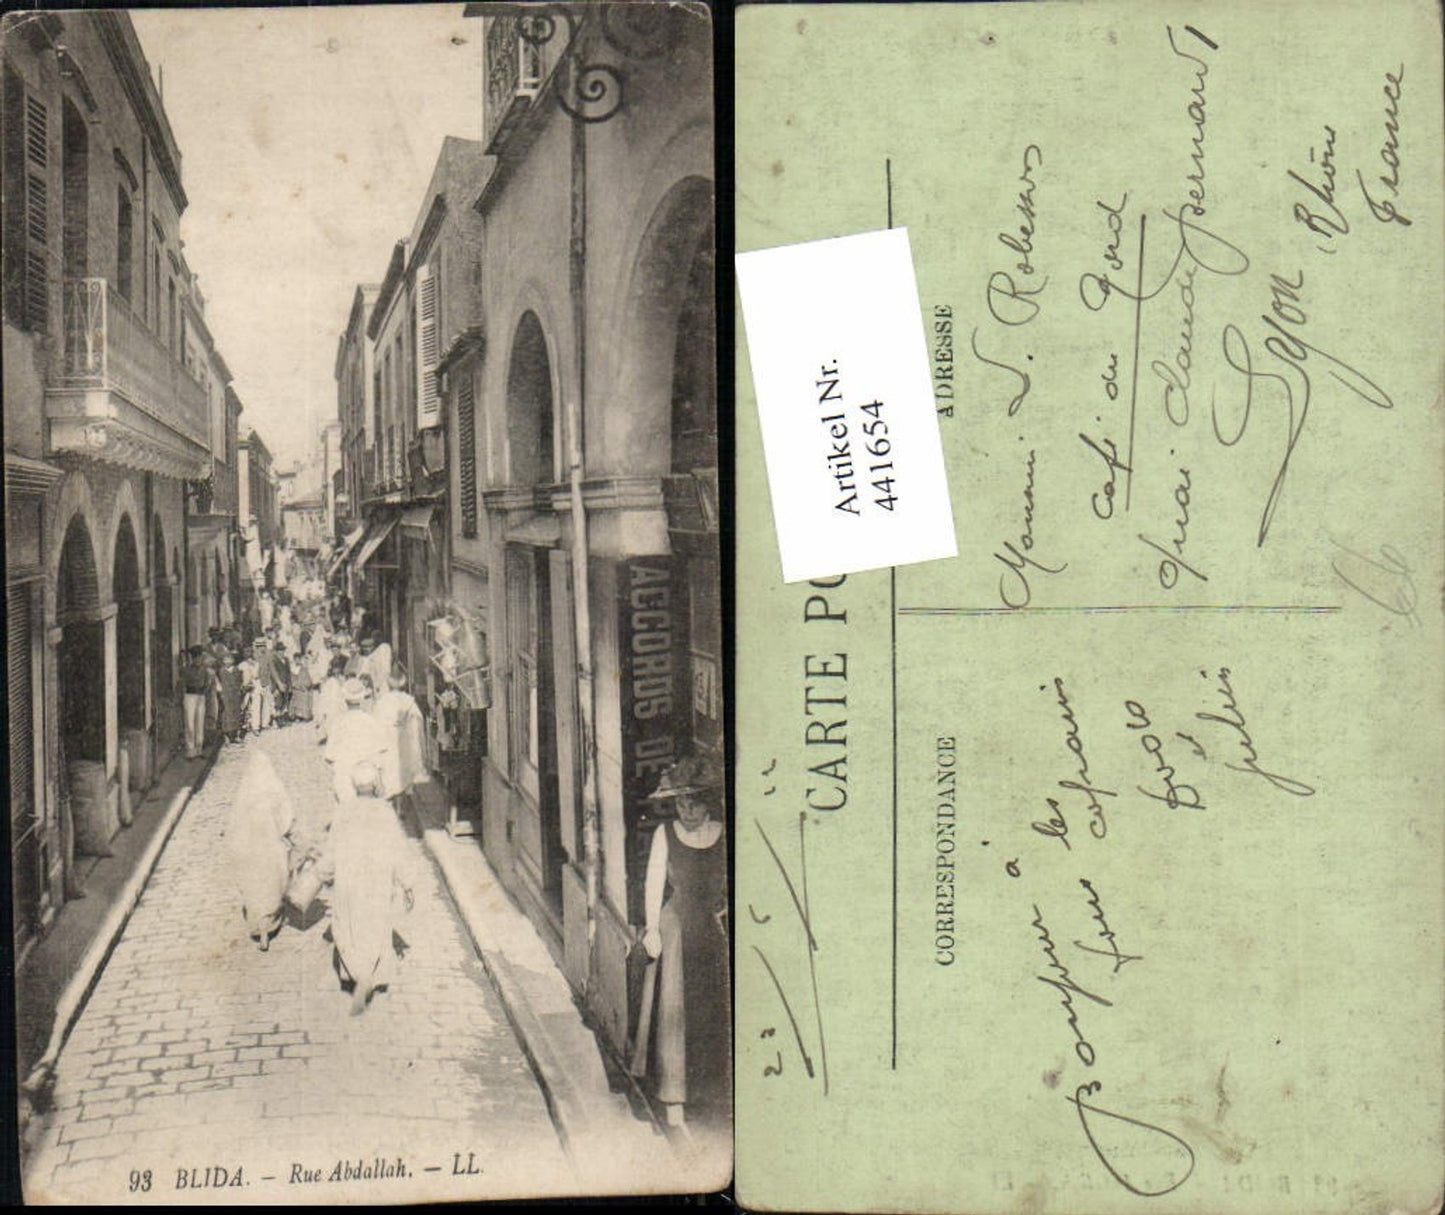 ACCORDS DE
93 BLIDA. — Rue Abdallah. — LL.
Artikel Nr.
441654
CARTE PO
CORRESPONDANCE
ADRESSE
Bonjour à
tous les
copains
Julien
L. Robesson
Café du Nord
Quai Claude Bernard 1
Lyon Rhône
France